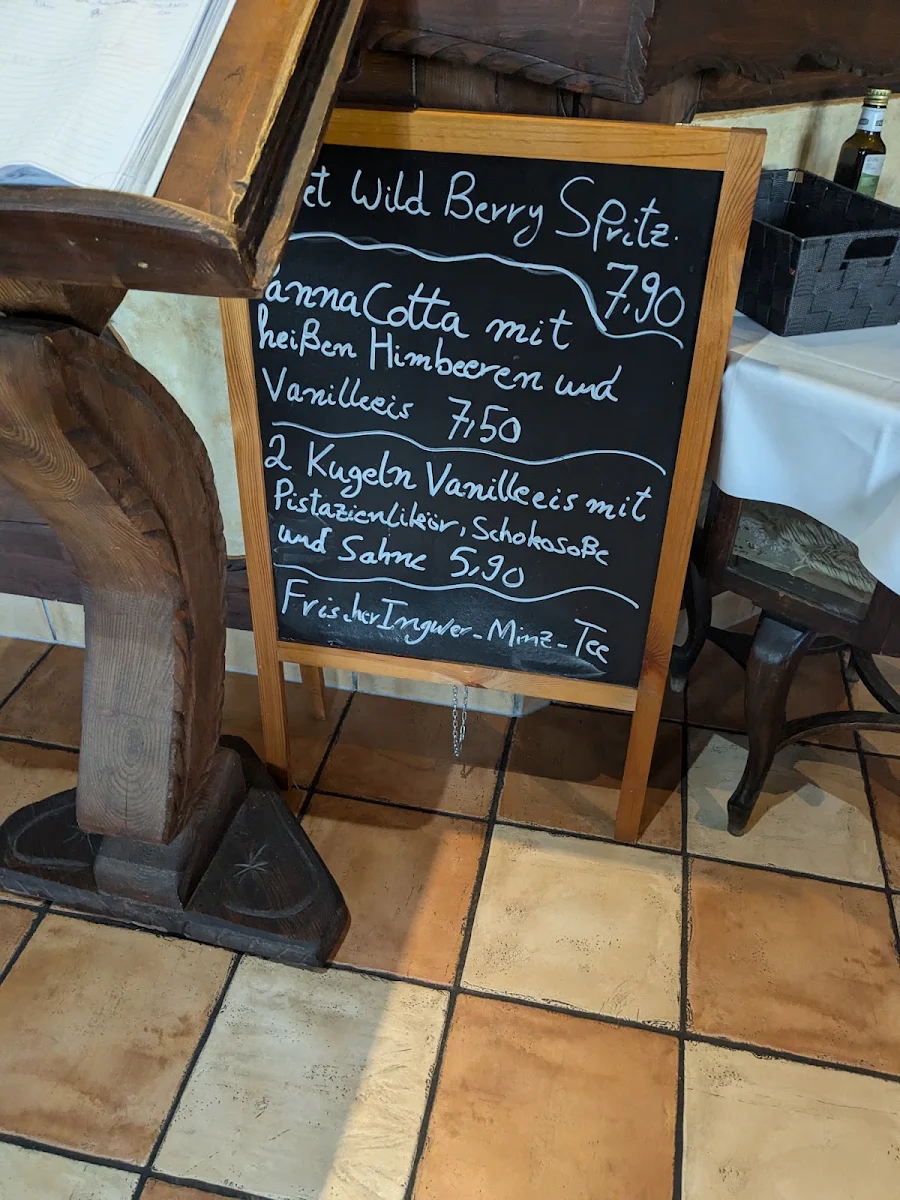 et Wild Berry Spritz.
7,90
anna Cotta mit
heißen Himbeeren und
Vanilleeis 7,50
2 Kugeln Vanilleeis mit
Pistazienlikör, Schokosoße
und Sahne 5,90
Frischer Ingwer-Minz-Tee